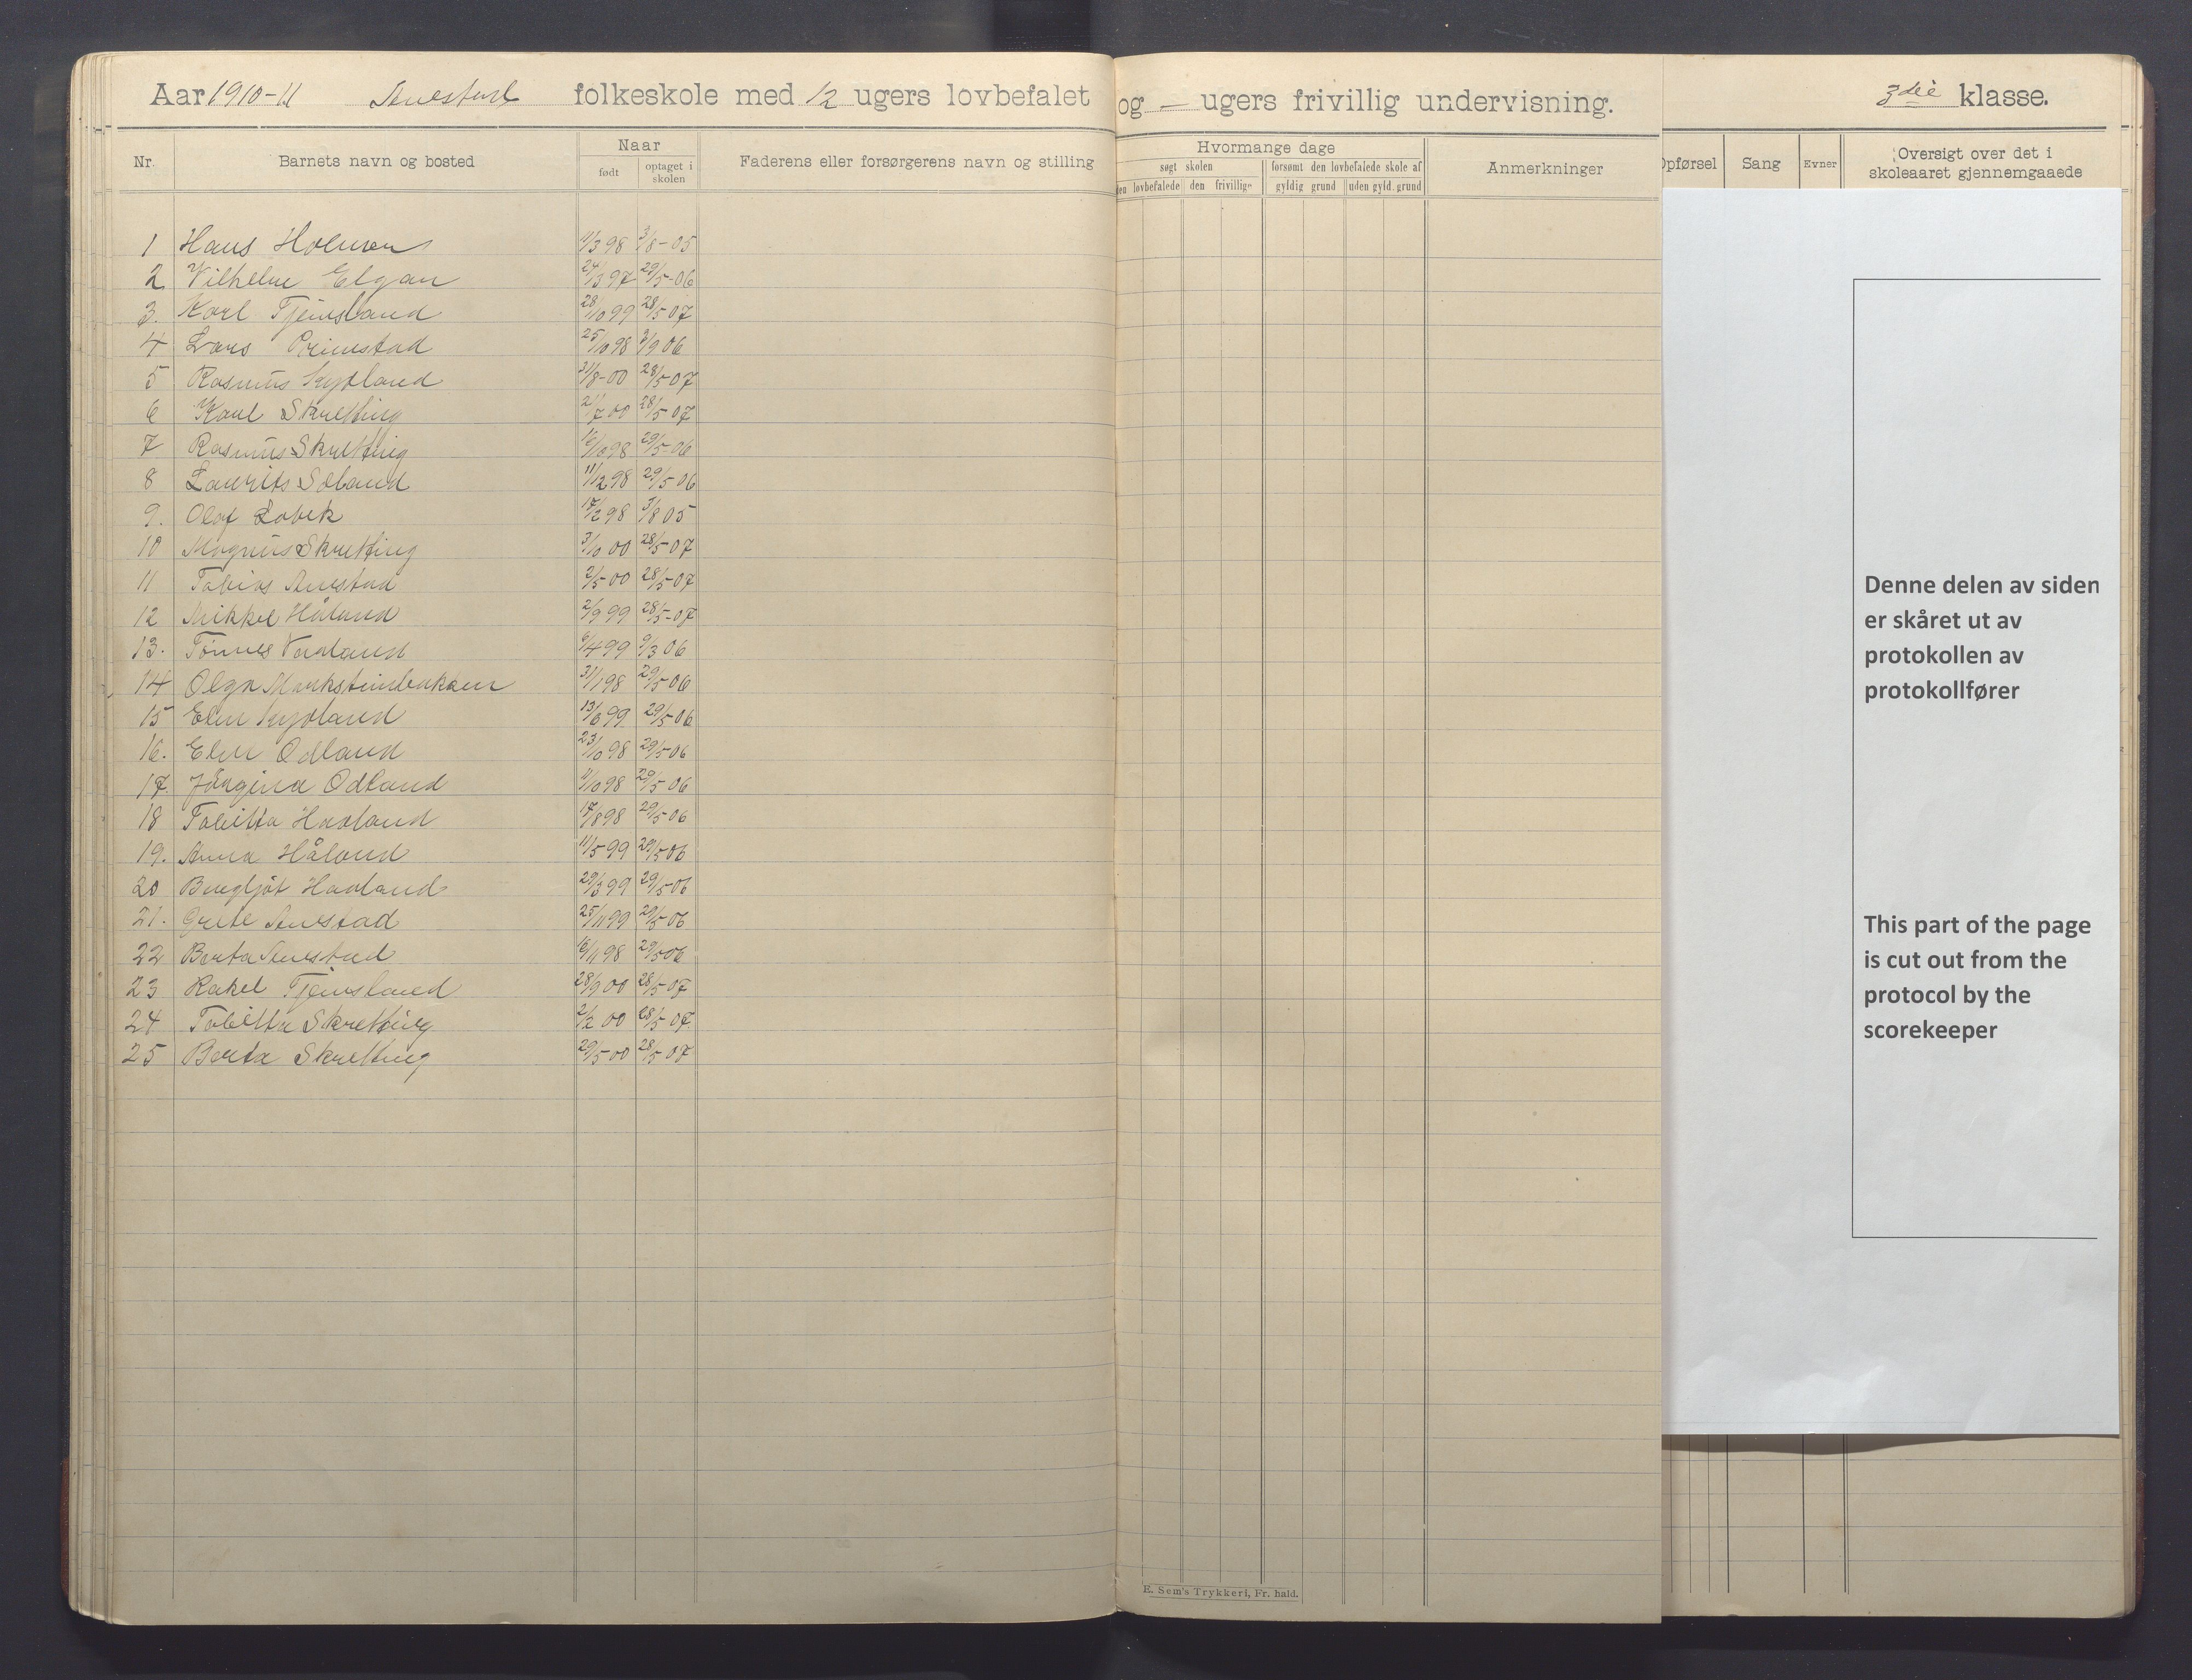 Aar 1910-11 Anestad folkeskole med 12 ugers lovbefalet og - ugers frivillig undervisning. 3die klasse.
Nr. Barnets navn og bosted Naar født optaget i skolen Faderens eller forsørgerens navn og stilling Hvormange dage søgt skolen den lovbefalede den frivillige forsømt den lovbefalede skole af gyldig grund uden gyld. grund Anmerkninger Opførsel Sang Evner Oversigt over det i skoleaaret gjennemgaaede
1 Hans Holmen 11/3 98 3/8-05
2 Vilhelm Elgan 24/3 97 29/5-06
3. Karl Tjemsland 28/10 99 28/5-07
4 Lars Primstad 25/10 98 3/9 06
5 Rasmus Lydland 31/8-00 28/5-07
6 Karl Skretting 21/7 00 28/5-07
7 Rasmus Skretting 16/10 98 29/5-06
8 Laurits Søland 11/12 98 29/5-06
9. Olaf Lobek 17/2 98 3/8 05
10 Magnus Skretting 3/10 00 28/5-07
11 Tobias Anestad 2/5-00 28/5-07
12 Mikkel Håland 2/9 99 28/5-07
13. Tønnes Varland 6/4 99 9/3 06
14 Olga 31/1 98 29/5-06
15 Elen Lydland 13/6 99 29/5-06
16. Elen Odland 23/10 98 29/5-06
17. Jørgina Odland 11/10 98 29/5-06
18 Tobitta Havland 17/8 98 29/5-06
19. Anna Håland 11/5 99 29/5-06
20 Bergljot Havland 29/3 99 29/5-06
21. Grete Anestad 25/11 99 29/5-06
22 Berta Anestad 16/11 98 29/5 06
23 Rakel Tjemsland 28/9 00 28/5-07
24 Tobitta Skretting 2/2 00 28/5-07.
25 Berta Skretting 29/5-00 28/5-07
E. Sem's Trykkeri, Fr. hald.
Denne delen av siden
er skåret ut av
protokollen av
protokollfører
This part of the page
is cut out from the
protocol by the
scorekeeper